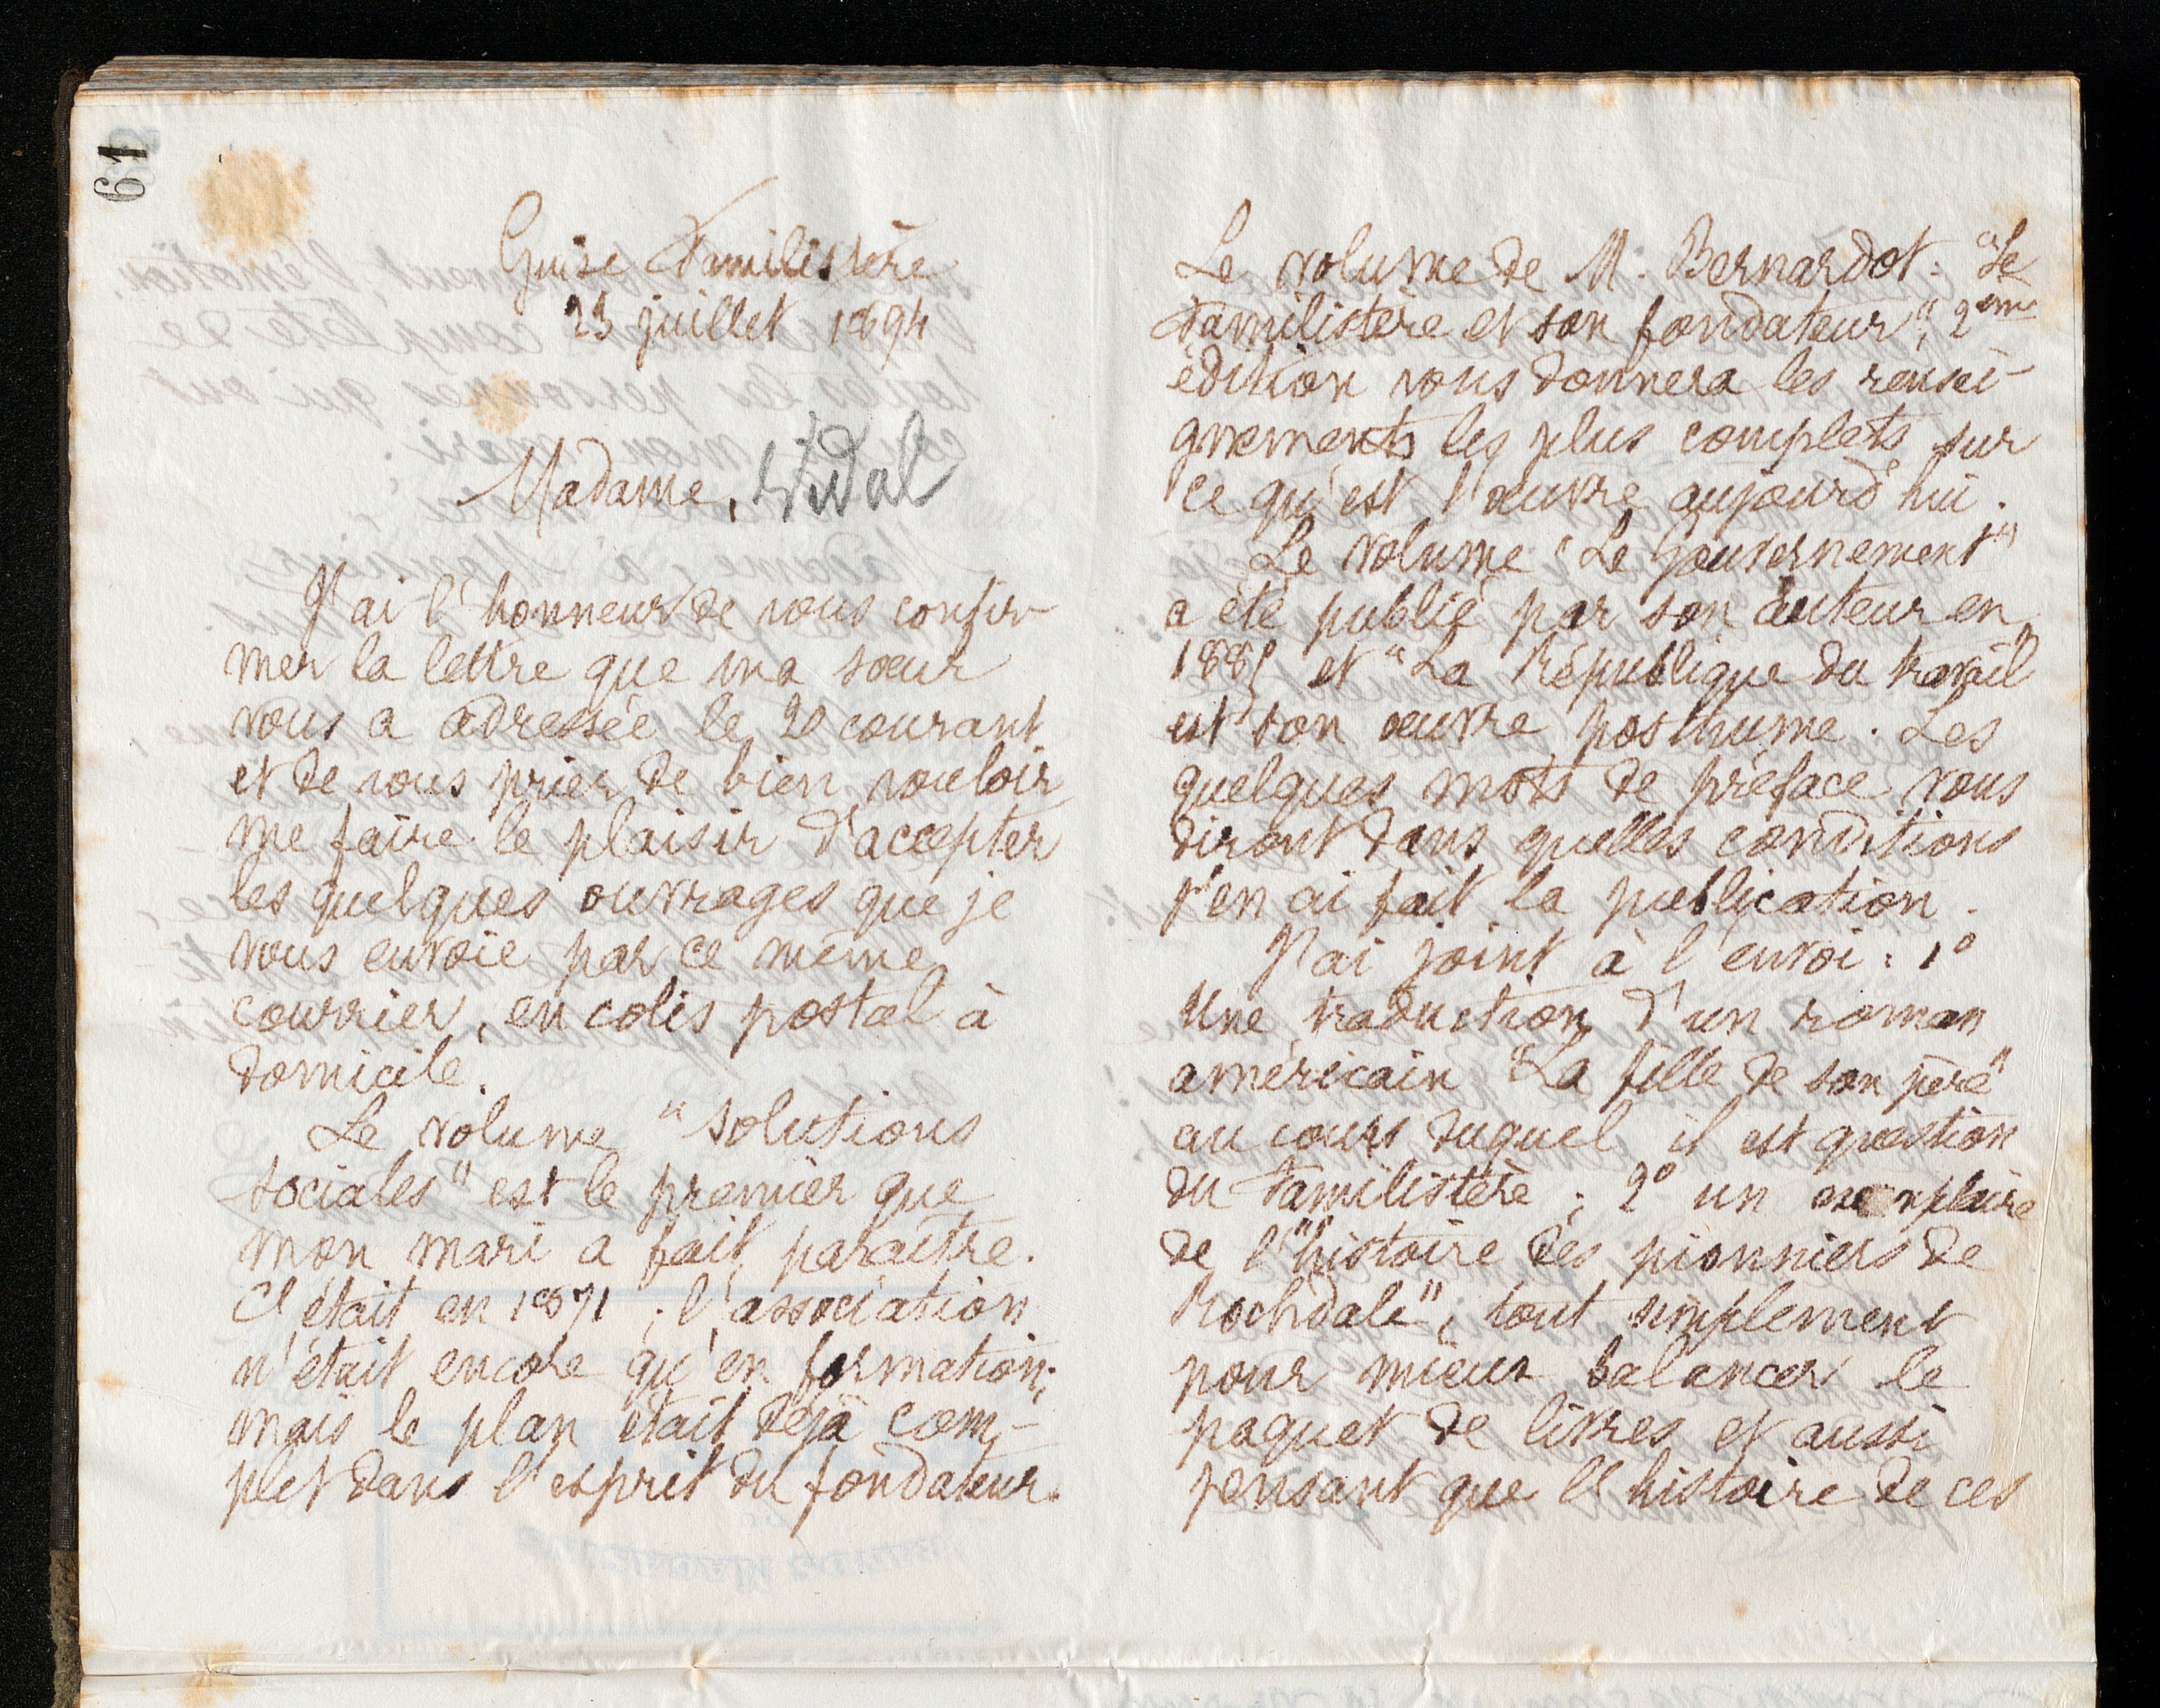 61
Guise Familistère
23 juillet 1894
Madame, Vidal
J'ai l'honneur de vous confir-
mer la lettre que ma sœur
vous a adressée le 20 courant
et de vous prier de bien vouloir
me faire le plaisir d'accepter
les quelques ouvrages que je
vous envoie par ce même
courrier, en colis postal à
domicile.
Le volume "Solutions
sociales" est le premier que
mon mari a fait paraître.
C'était en 1871 ; l'association
n'était encore qu'en formation ;
mais le plan était déjà com-
plet dans l'esprit du fondateur.
Le volume de M. Bernardot : "Le
Familistère et son fondateur", 2ème
édition vous donnera les rensei-
gnements les plus complets sur
ce qu'est l'œuvre aujourd'hui.
Le volume "Le Gouvernement"
a été publié par son auteur en
188 et "La République du travail"
est son œuvre posthume. Les
quelques mots de préface vous
diront dans quelles conditions
j'en ai fait la publication.
J'ai joint à l'envoi : 1°
Une traduction d'un roman
américain "La fille de son père"
au cours duquel il est question
du Familistère ; 2° un exemplaire
de l'"histoire des pionniers de
Rochdale", tout simplement
pour mieux balancer le
paquet de livres et aussi
pensant que l'histoire de ces